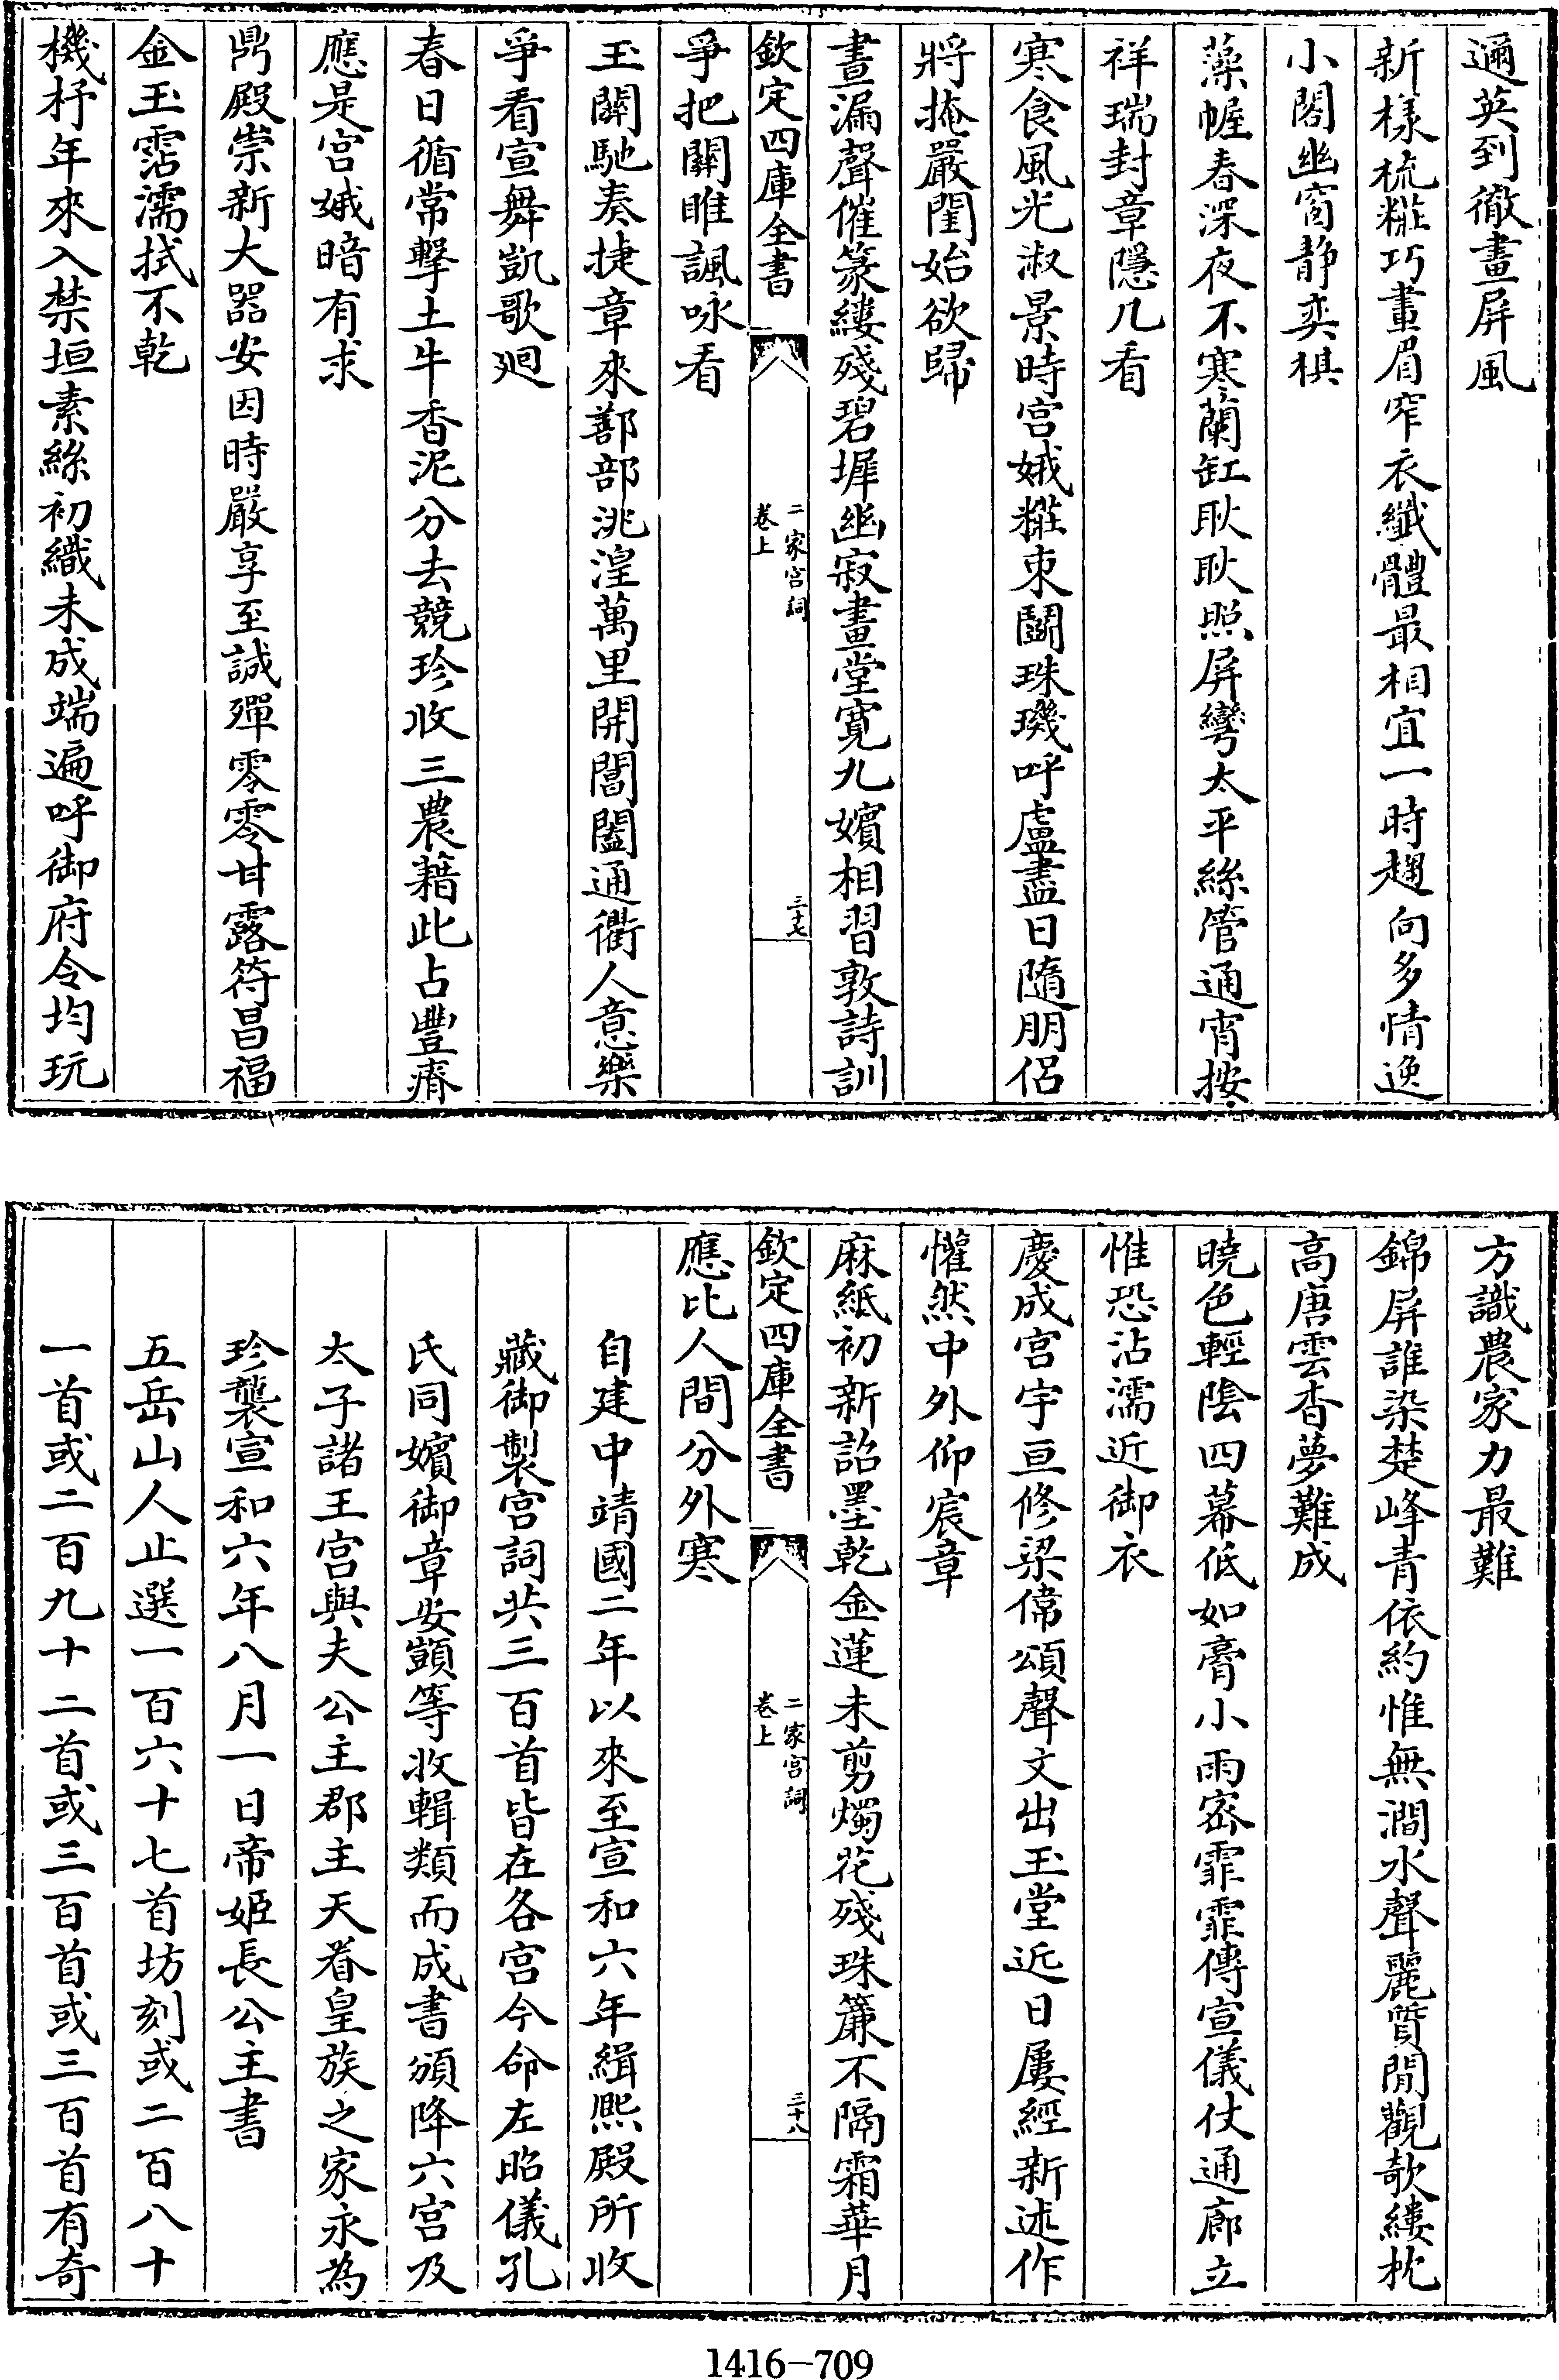 邇英到徹畫屏風
新様梳糚巧畫眉窄衣纖體最相宜一時趨向多情逸
小閣幽窗静奕棋
藻幄春深夜不寒蘭缸耿耿照屏彎太平絲管通宵按
祥瑞封章隱几看
寒食風光淑景時宫娥糚束鬭珠璣呼盧盡日隨朋侣
將掩嚴闈始欲歸
晝漏聲催篆縷殘碧墀幽寂畫堂寛九嬪相習敦詩訓
欽定四庫全書
二家宫詞
卷上
三十七
爭把關雎諷咏看
玉關馳奏捷章來鄯部洮湟萬里開閶闔通衢人意樂
爭看宣舞凱歌廻
春日循常擊土牛香泥分去競珍收三農藉此占豐瘠
應是宫娥暗有求
鼎殿崇新大器安因時嚴享至誠殫零零甘露符昌福
金玉霑濡拭不乾
機杼年來入禁垣素絲初織未成端遍呼御府令均玩
方識農家力最難
錦屏誰染楚峰青依約惟無澗水聲麗質閒觀欹縷枕
高唐雲杳夢難成
曉色輕陰四幕低如膏小雨宻霏霏傳宣儀仗通廊立
惟恐沾濡近御衣
慶成宫宇亘修梁偉頌聲文出玉堂近日屢經新述作
懽然中外仰宸章
麻紙初新詔墨乾金蓮未剪燭花殘珠簾不隔霜華月
欽定四庫全書
二家宫詞
卷上
三十八
應比人間分外寒
自建中靖國二年以來至宣和六年緝熙殿所收
藏御製宫詞共三百首皆在各宫今命左昭儀孔
氏同嬪御章安顗等收輯類而成書頒降六宫及
太子諸王宫與夫公主郡主天眷皇族之家永為
珍襲宣和六年八月一日帝姬長公主書
五岳山人止選一百六十七首坊刻或二百八十
一首或二百九十二首或三百首或三百首有奇
1416-709